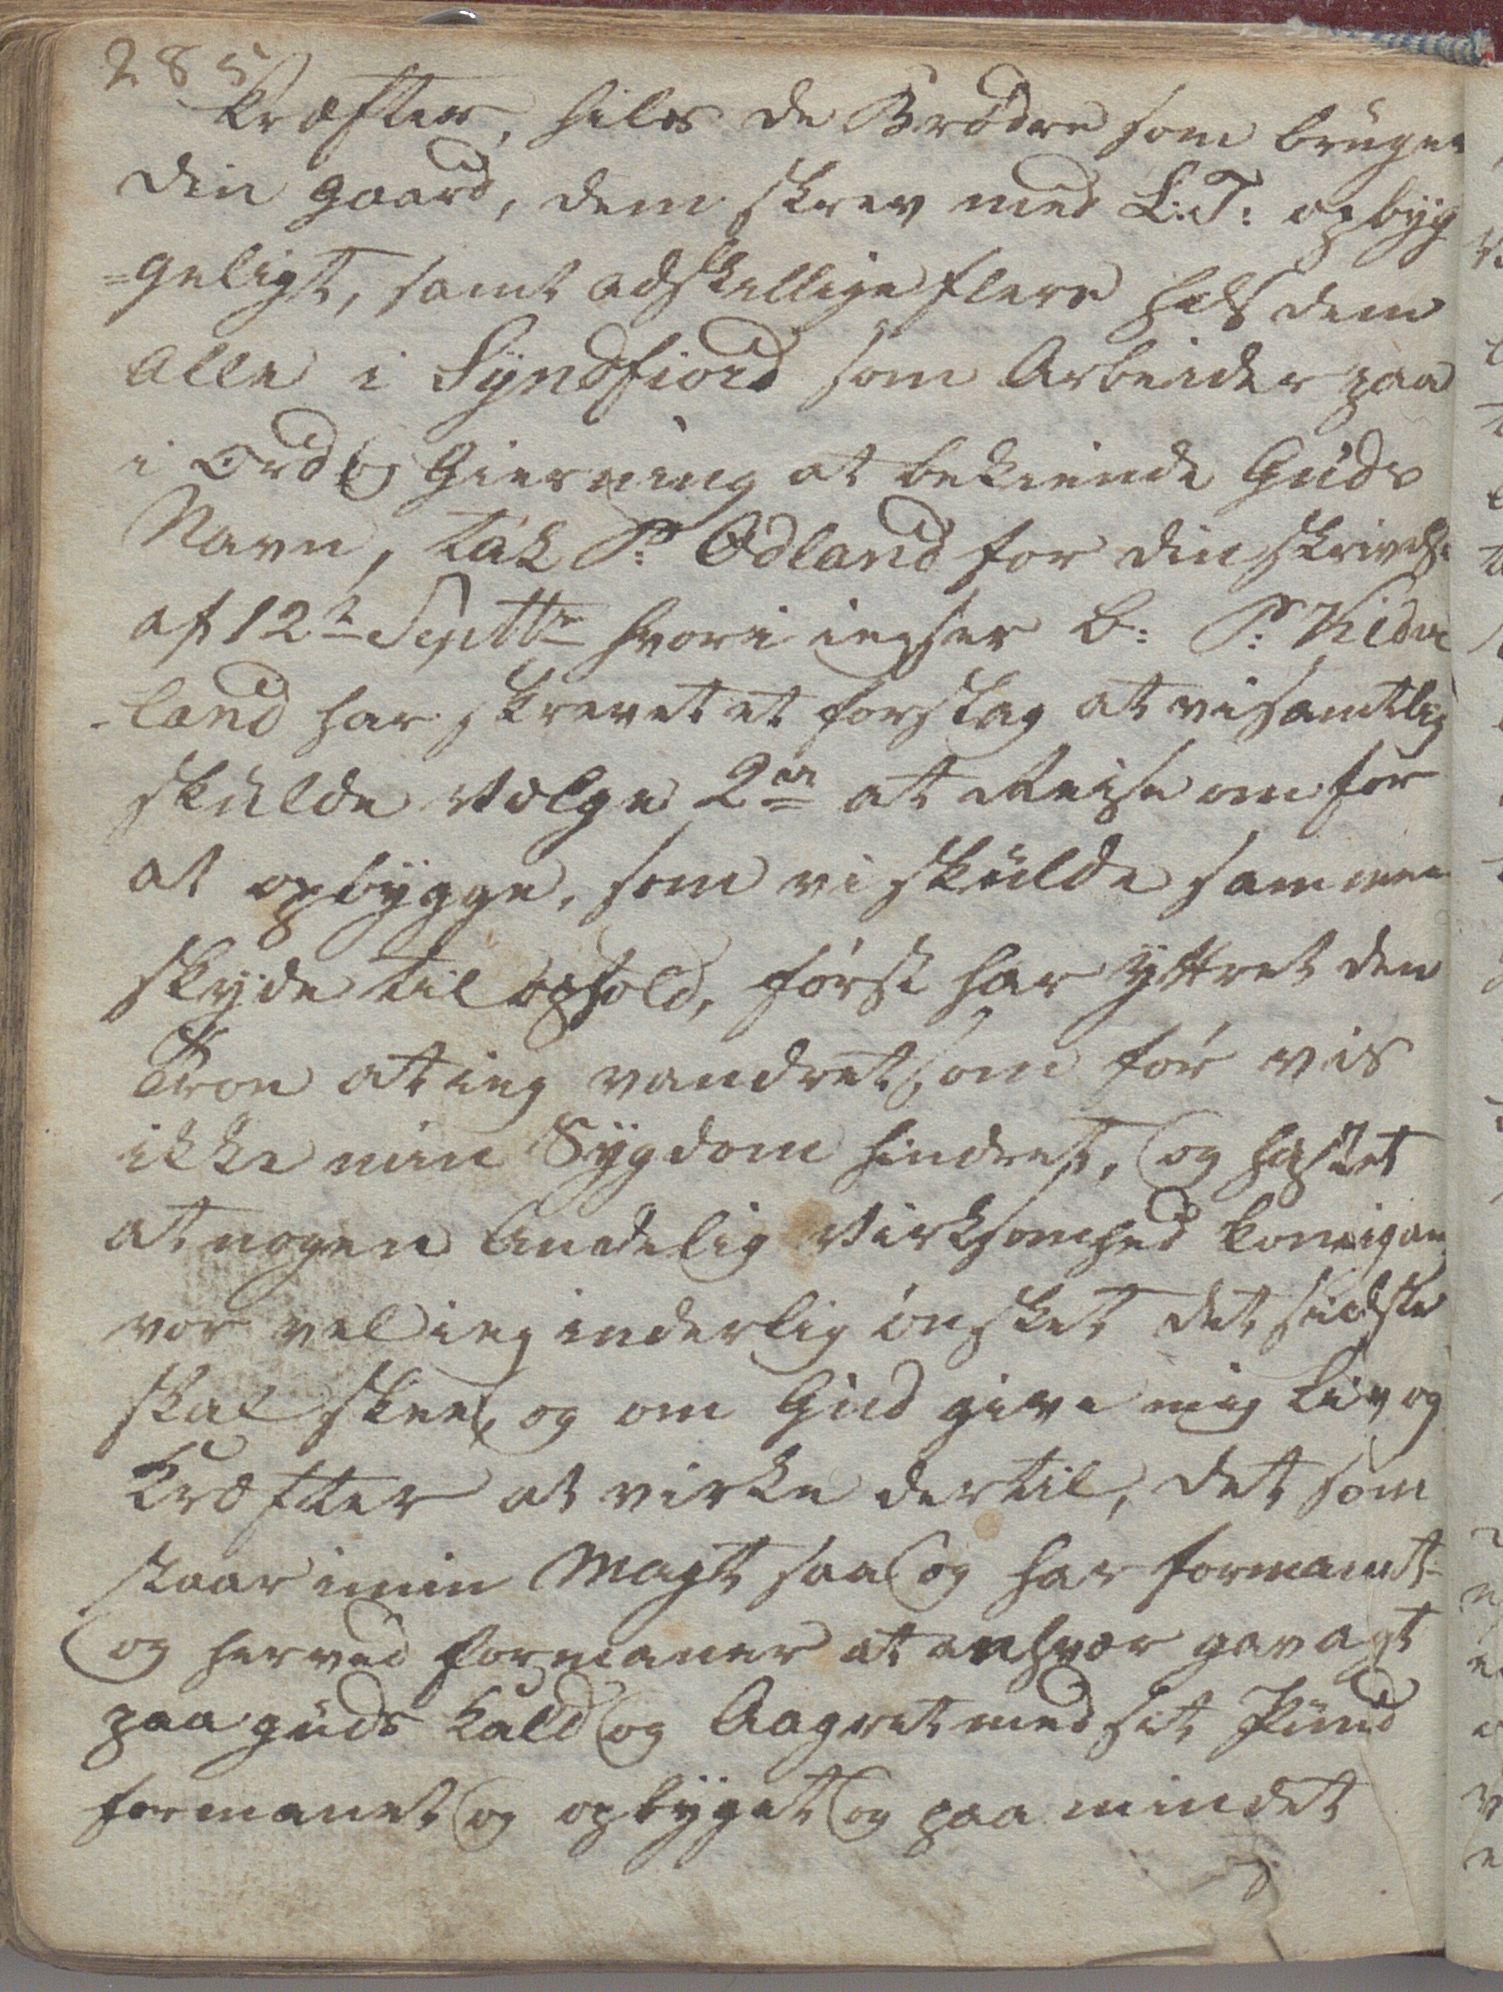 285
Kræfter, hils de Brødre som bruger
din gaard, dem skrev med L: T: opbyg
=geligt, samt adskellige flere hils dem
alle i Syndfiord som Arbeider paa
i Ord og Gierning at bekiende Guds
Navn, tak P: Odland for din skrivelse
af 12te Septbr hvori ieg ser B: P:
-land har skrevet et forslag at vi samtlig
skulde vælge 2de at Reise om for
at opbygge, som vi skulde sammen
skyde til ophold, først har yttret den
Troe at ieg vandret som før vis
ikke min Sygdom hindret, og haabet
at nogen Aandelig Virksomhed kom igan
vor vel ieg inderlig ønsket det sidste
skal skee, og om Gud give mig Liv og
Kræfter at virke dertil, det som
staar i min Magt saa og har formant
og herved formaner at enhver gav agt
paa guds kald og Aagret med sit Pund
formanet og opbyget og paa mindet